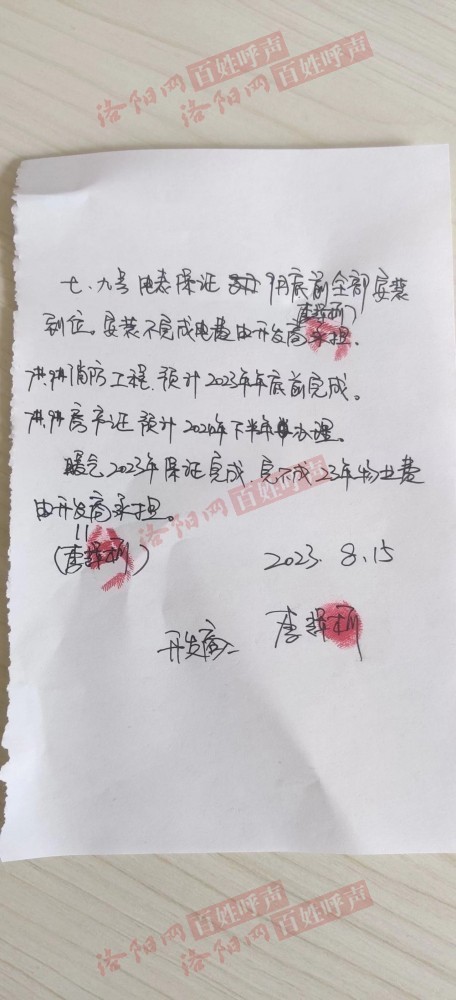 洛阳网 百姓呼声
洛阳网 百姓呼声
七.九号电表保证 9月底前全部安装
(李铎柄)
到位。安装不完成电费由开发商承担.
7#.9#消防工程.预计2023年年底前完成。
7#.9#房产证预计2024年下半年办理。
暖气2023年保证完成 完不成23年物业费
洛阳网 百姓呼声
由开发商承担。
2023. 8.15
开发商:
洛阳网 百姓呼声
洛阳网 百姓呼声